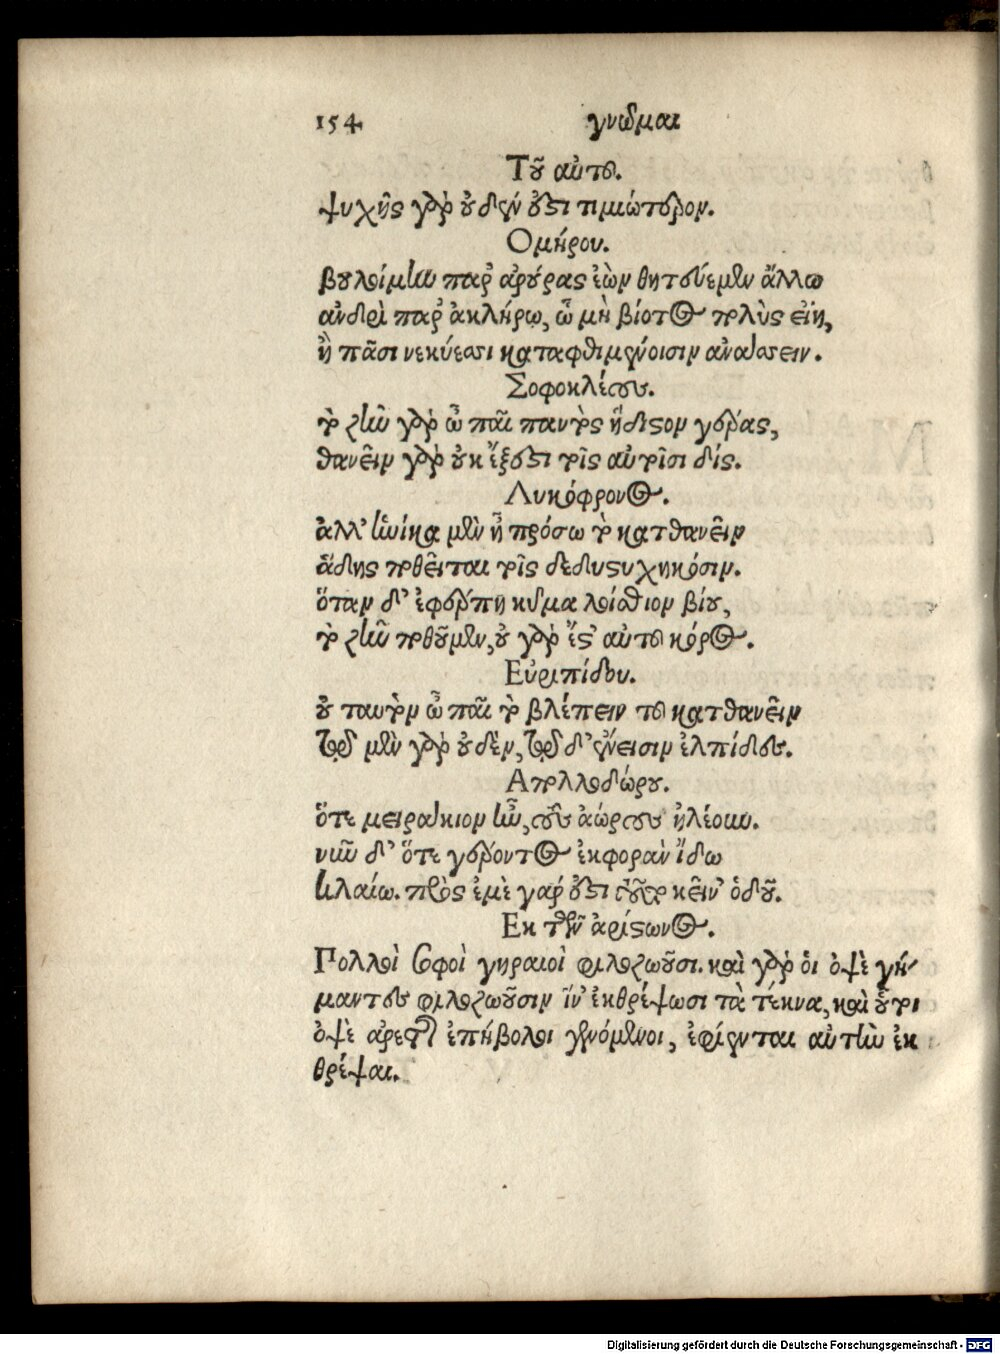 154 γνῶμαι
Τοῦ αὐτοῦ.
ψυχῆς γὰρ οὐδέν ἐστι τιμιώτερον.
Ομήρου.
βουλοίμην παρ ἀρούρας ἐὼν θητευέμεν ἄλλῳ
ἀνδρὶ παρ ἀκλήρῳ, ᾧ μὴ βίοτος πολὺς εἴη,
ἢ πᾶσι νεκύεσσι καταφθιμένοισιν ἀνάσσειν.
Σοφοκλέους.
τὸ ζῆν γὰρ ὦ παῖ παντὸς ἥδιστον γέρας,
θανεῖν γὰρ οὐκ ἔξεστι τοῖς αὐτοῖσι δίς.
Λυκόφρονος.
ἀλλ' ἡνίκα μὲν ἦ πρόσω τὸ κατθανεῖν
ἅδης ποθεῖται τοῖς δεδυστυχηκόσιν.
ὅταν δ' ἐφέρπῃ κῦμα λοίσθιον βίου,
τὸ ζῆν ποθοῦμεν, οὐ γὰρ ἔστ' αὐτοῦ κόρος.
Εὐριπίδου.
οὐ ταυτὸν ὦ παῖ τὸ βλέπειν τῷ κατθανεῖν
τὸ μὲν γὰρ οὐδὲν, τῷ δ' ἔνεισιν ἐλπίδες.
Απολλοδώρου.
ὅτε μειράκιον ἦν, τοὺς ἀώρους ἠλέουν.
νῦν δ' ὅτε γέροντος ἐκφορὰν ἴδω
κλαίω. πρὸς ἐμὲ γάρ ἐστι τοῦτο κεῖν' ὁδοῦ.
Εκ τῶν ἀρίστωνος.
Πολλοὶ σοφοὶ γηραιοὶ φιλοζωοῦσι. καὶ γὰρ οἱ ὀψὲ γή-
μαντες φιλοζωοῦσιν ἵν' ἐκθρέψωσι τὰ τέκνα, καὶ οὗτοι
ὀψὲ ἀρετῆς ἐπήβολοι γενόμενοι, ἐφίενται αὐτὴν ἐκ
θρέψαι.
Digitalisierung gefördert durch die Deutsche Forschungsgemeinschaft - DFG